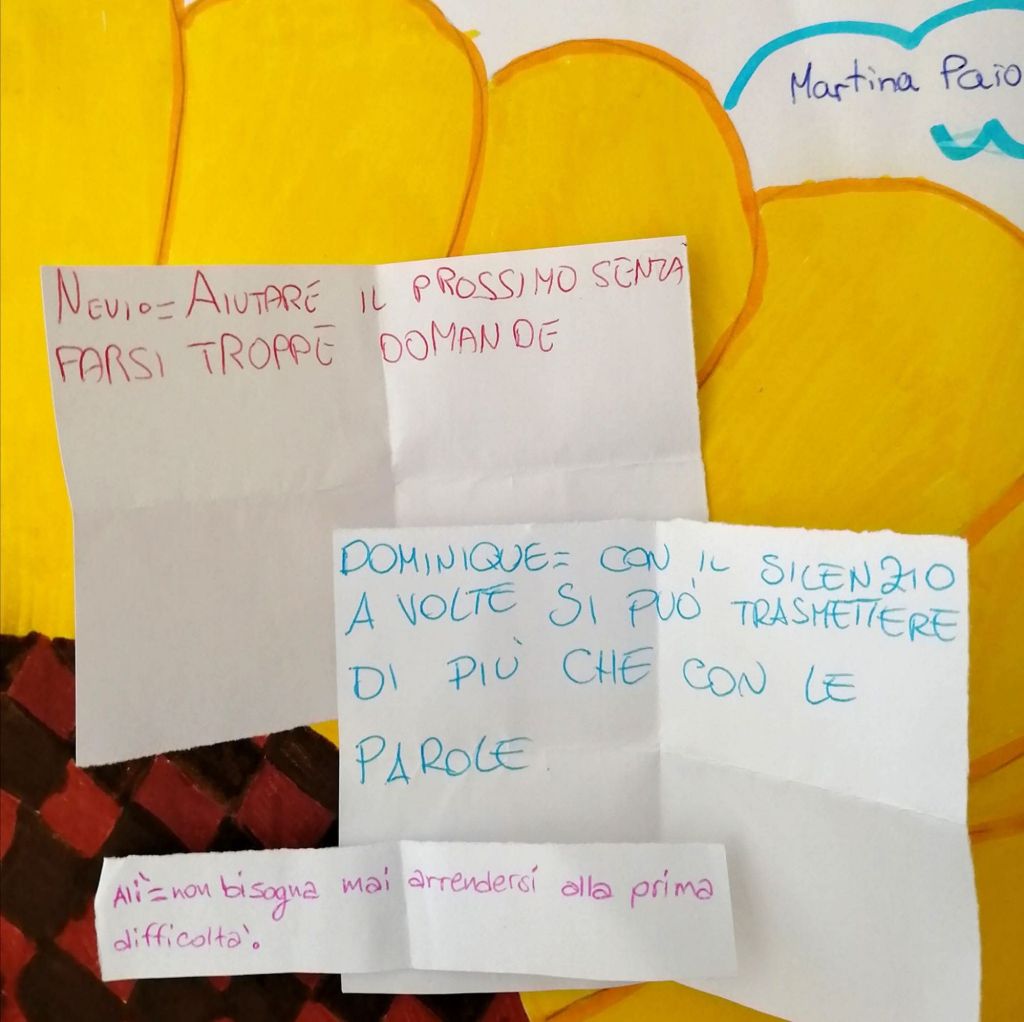 Martina Paio
NEVIO= AIUTARE IL PROSSIMO SENZA
FARSI TROPPE DOMANDE
DOMINIQUE= CON IL SILENZIO
A VOLTE SI PUÒ TRASMETTERE
DI PIÙ CHE CON LE
PAROLE.
Alì=non bisogna mai arrendersi alla prima
difficoltà.